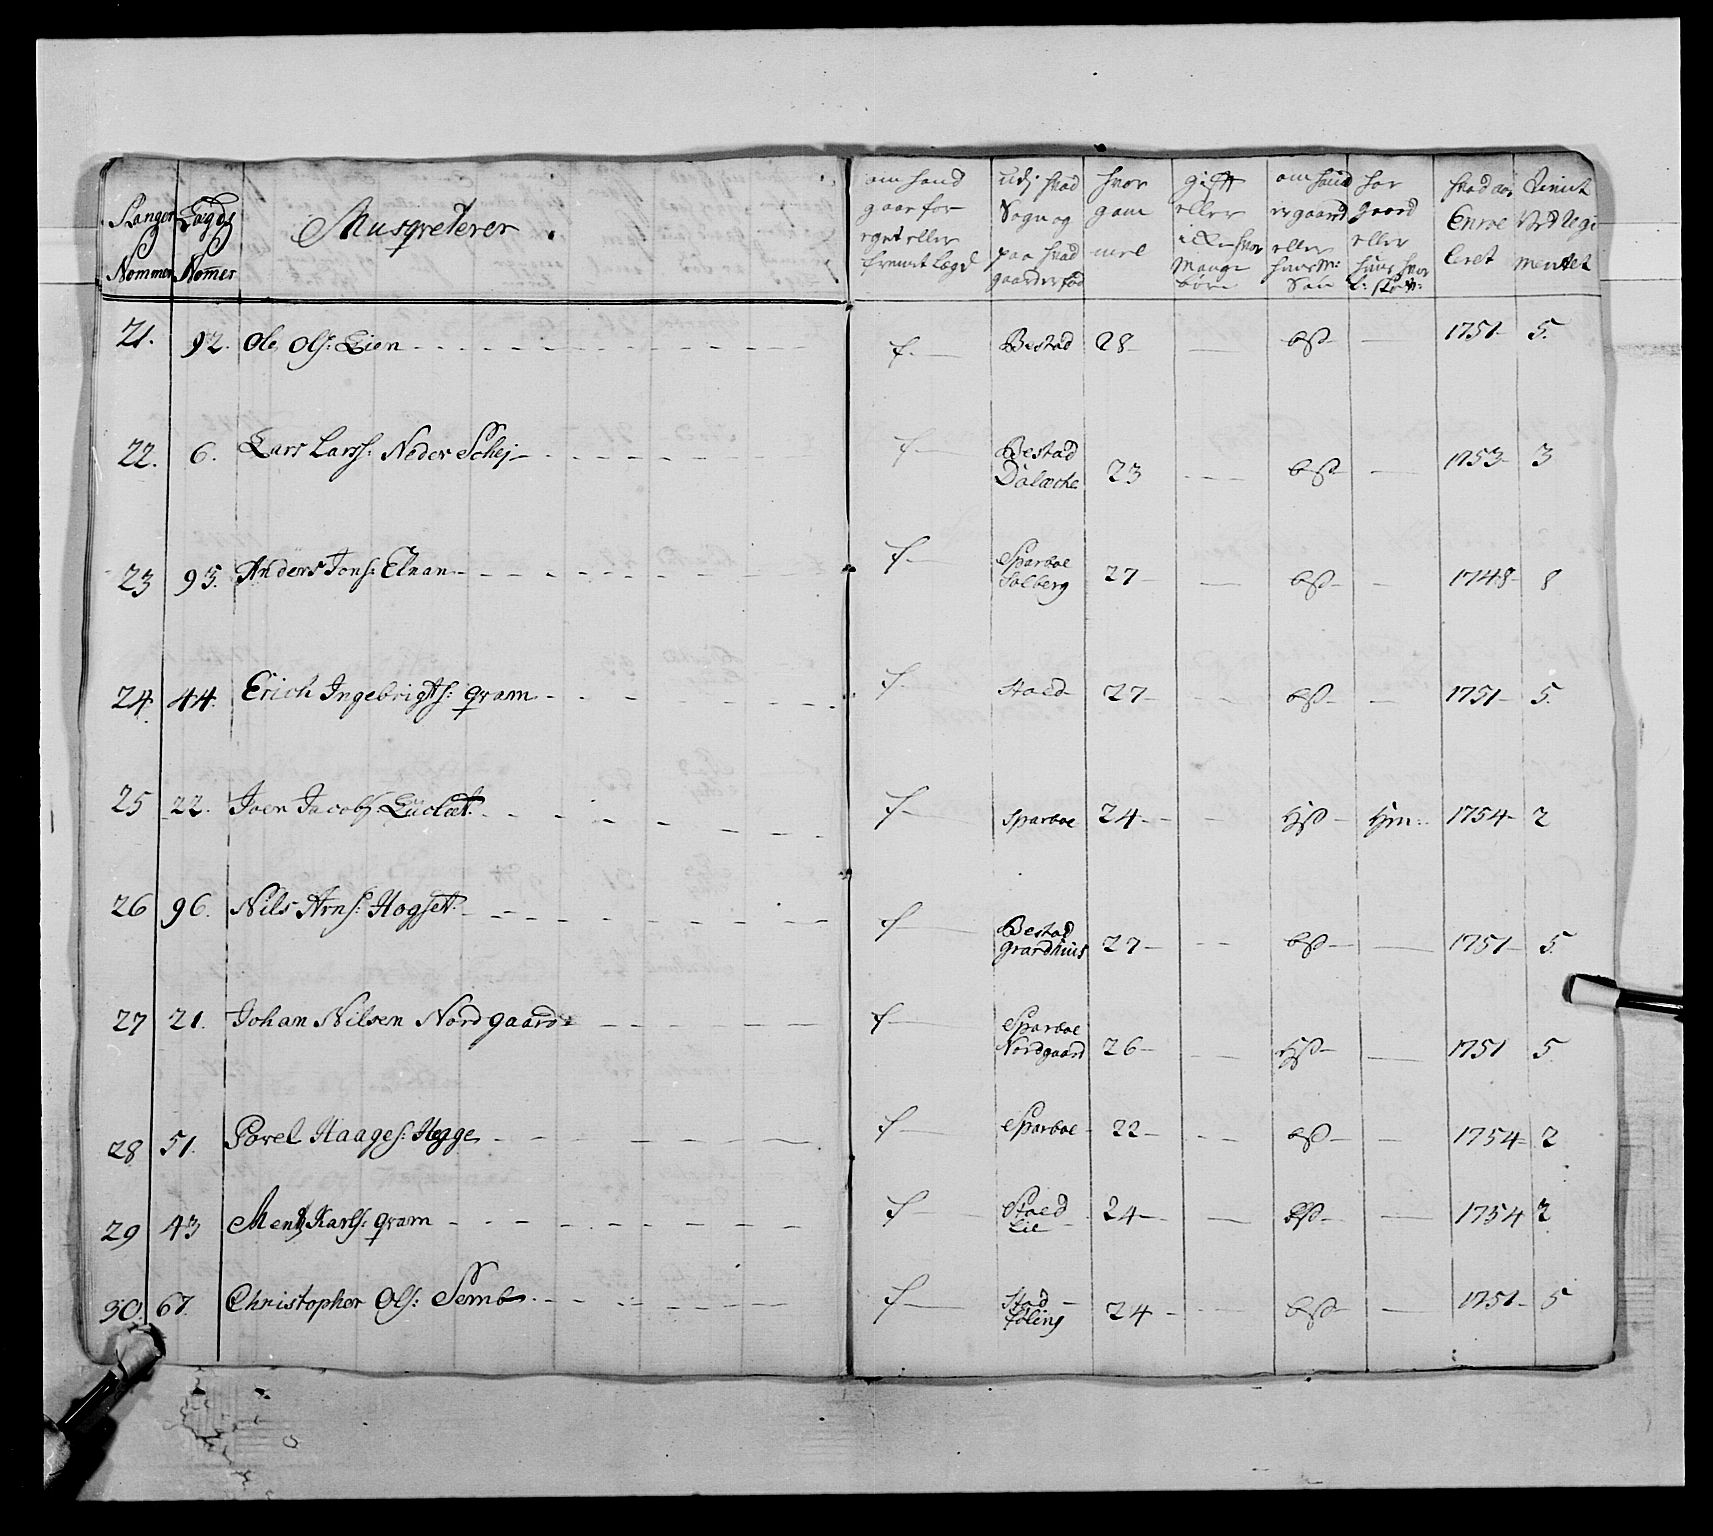 Nommer Nomer Musqveterer
om hand gaar for eget eller fremit Lægd
udj hvad Sogn og paa hvad gaard er fød
hvor gam mel
gift eller icke hvor Mange børn
om hand er gaard eller huusm: Søn
har gaard eller huus hvor
hvad aar Enroe leret
tient ved Regi mentet
21. 92. Ole Ols: Lien f. Bestad 28 bß 1751 5.
22. 6. Lars Larss: Neder Schej f Bestad Dalæche 23 bß 1753 3
23 95. Anders Jons: Elnan f Sparboe Solberg 27 bß 1748 8
24. 44. Erich Ingebrigts: qvam f Stoed 27 bß 1751 5.
25 22. Joen Jacobs: f Sparboe 24 Hß Hm: 1754 2
26 96. Nils Arns: Hogset f Bestad grandhuus 27 bß 1751 5.
27 21. Johan Nilsen Nordgaard f Sparboe Nordgaard 26 Hß 1751 5
28 51. Povel Haages: Hegge f Sparboe 22 bß 1754 2
29 43 Mentz Karls: qvam f Stoed Lie 24 bß 1754 2
30. 67. Christopher Ols: Semb f Stod føling 24 bß 1751 5